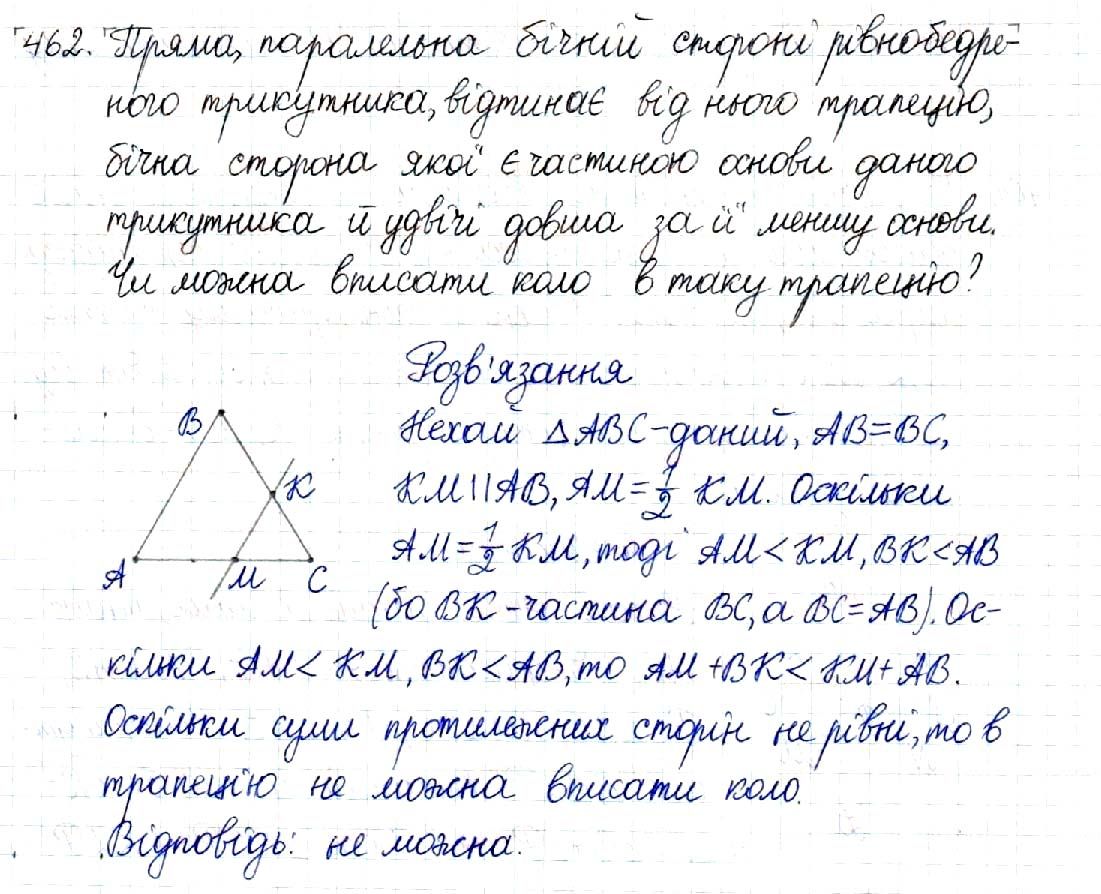 462. Пряма, паралельна бічній стороні рівнобедре-
ного трикутника, відтинає від нього трапецію,
бічна сторона якої є частиною основи даного
трикутника й удвічі довша за її меншу основи.
Чи можна вписати коло в таку трапецію?
Розв'язання
Нехай △ABC-даний, AB=BC,
KM||AB, AM=1/2 KM. Оскільки
AM=1/2 KM, тоді AM<KM, BK<AB
(бо BK-частина BC, а BC=AB). Ос-
кільки AM<KM, BK<AB, то AM+BK<KM+AB.
Оскільки суми протилежних сторін не рівні, то в
трапецію не можна вписати коло.
Відповідь: не можна.
B
K
A
M
C